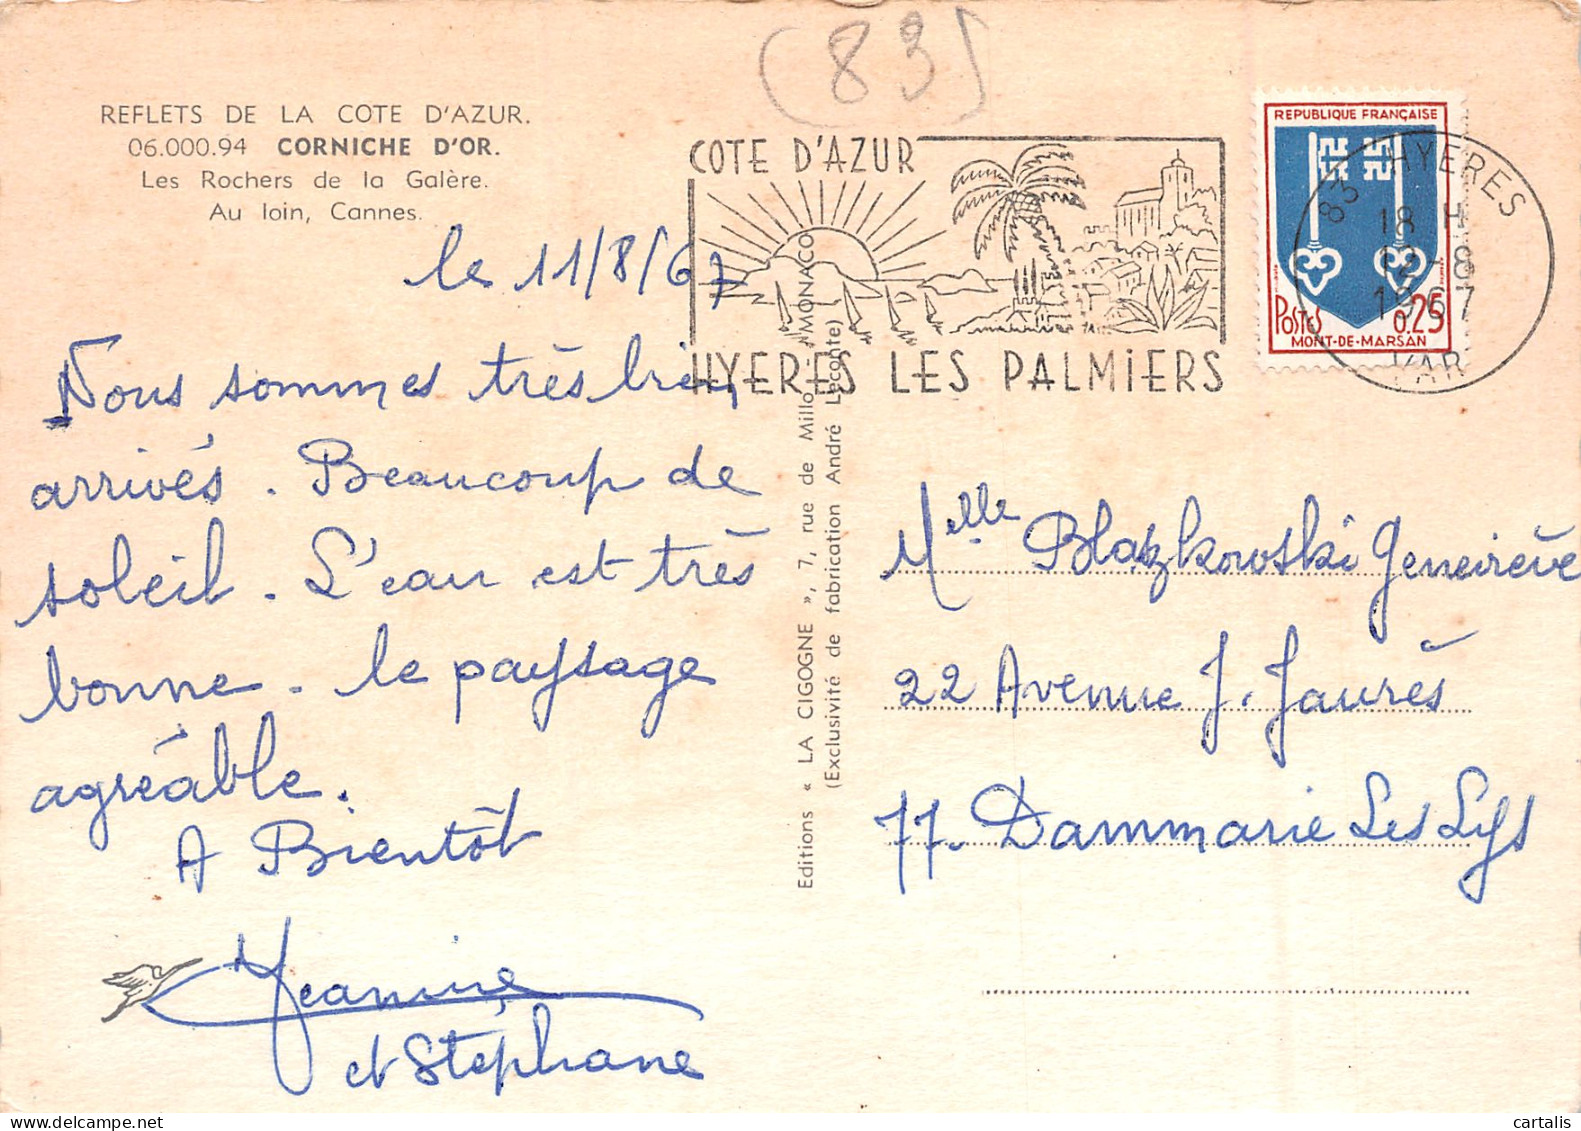 (83)
REFLETS DE LA COTE D'AZUR.
06.000.94 CORNICHE D'OR.
Les Rochers de la Galère.
Au loin, Cannes.
le 11/8/67
Nous sommes très bien
arrivés. Beaucoup de
soleil. L'eau est très
bonne. le paysage
agréable.
A Bientôt
Jeannine
et Stéphane
Editions « LA CIGOGNE », 7, rue de Millo - MONACO
(Exclusivité de fabrication André Leconte)
COTE D'AZUR
HYERES LES PALMIERS
REPUBLIQUE FRANÇAISE
POSTES 0.25
MONT-DE-MARSAN
83 HYERES
18 H
12-8
1967
VAR
Melle Blazkowski Geneviève
22 Avenue J. Jaurès
77. Dammarie Les Lys
cartalis